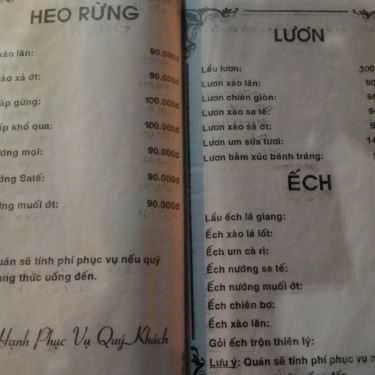 HEO RỪNG
xào lăn: 90.000đ
xào xả ớt: 90.000đ
hấp gừng: 100.000đ
hấp khổ qua: 100.000đ
nướng mọi: 90.000đ
nướng Satế: 90.000đ
nướng muối ớt: 90.000đ
uán sẽ tính phí phục vụ nếu quý
ang thức uống đến.
Hạnh Phục Vụ Quý Khách
LƯƠN
Lẩu lươn:
Lươn xào lăn:
Lươn chiên giòn:
Lươn xào sa tế:
Lươn xào sả ớt:
Lươn um sữa tươi:
Lươn bằm xúc bánh tráng:
ẾCH
Lẩu ếch lá giang:
Ếch xào lá lốt:
Ếch um cà ri:
Ếch nướng sa tế:
Ếch nướng muối ớt:
Ếch chiên bơ:
Ếch xào lăn:
Gỏi ếch trộn thiên lý:
Lưu ý: Quán sẽ tính phí phục vụ n